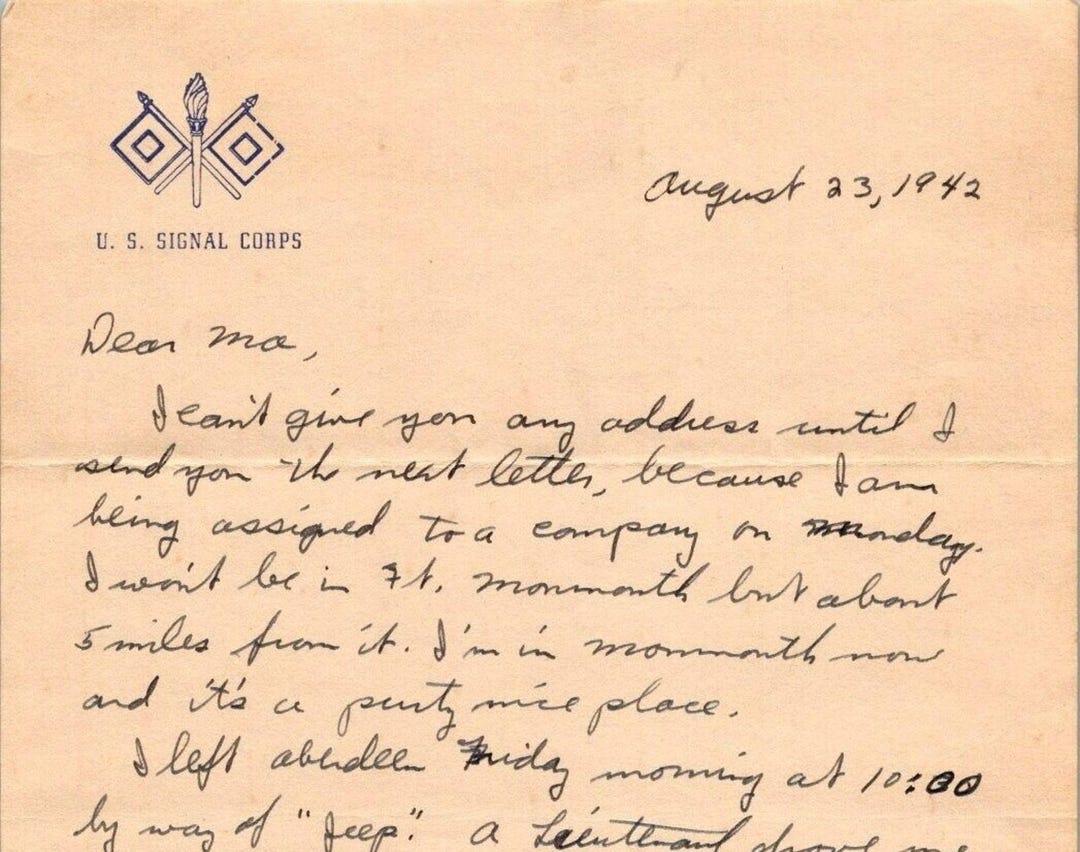 August 23, 1942
U. S. SIGNAL CORPS
Dear Ma,
I can't give you any address until I
send you the next letter, because I am
being assigned to a company on Monday.
I won't be in Ft. Monmouth but about
5 miles from it. I'm in Monmouth now
and it's a purty nice place.
I left aberdeen Friday morning at 10:00
by way of "Jeep." A Lieutenant drove me